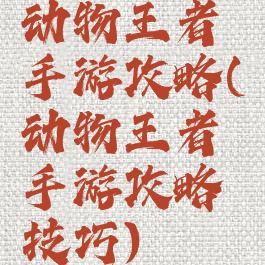 动物王者
手游攻略(
动物王者
手游攻略
技巧)